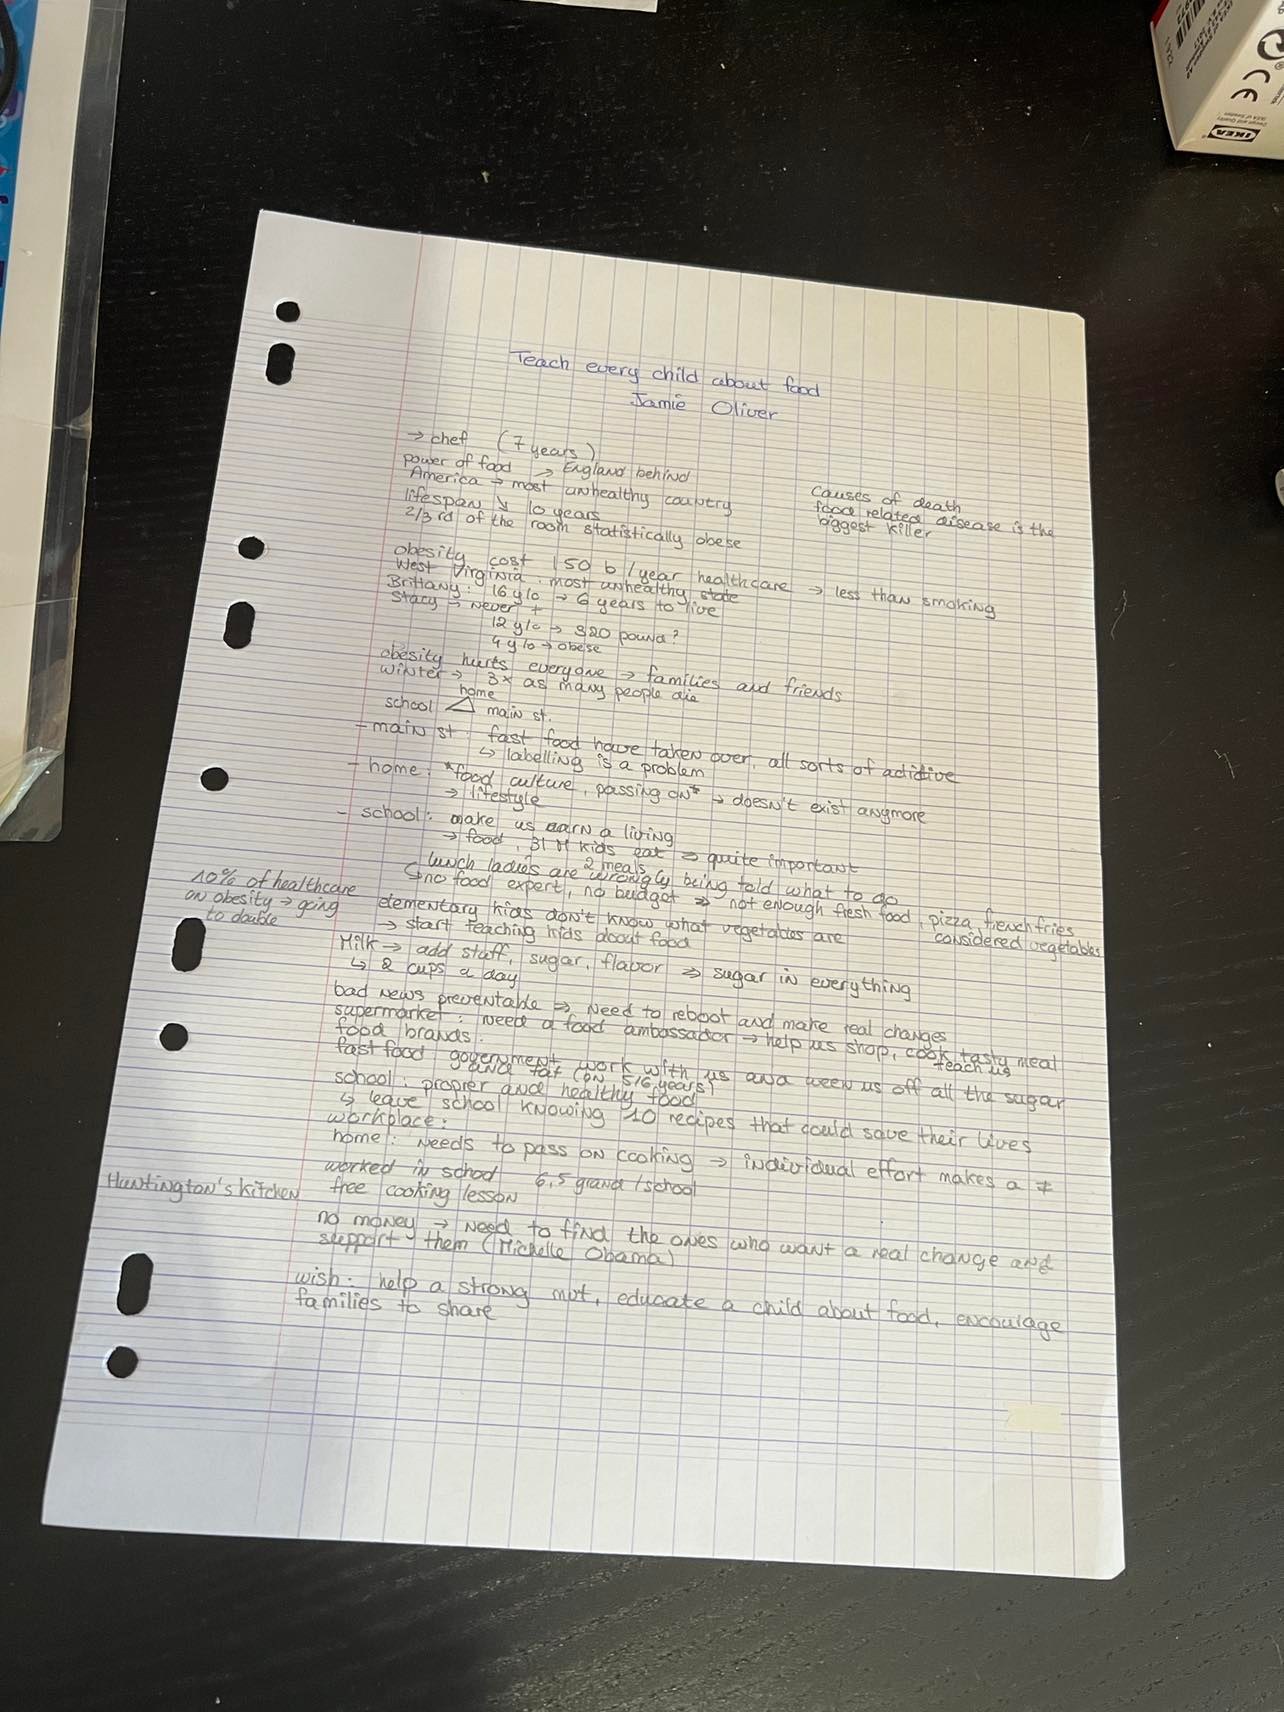 Teach every child about food
Jamie Oliver
→ chef (7 years)
power of food → England behind
America → most unhealthy country
lifespan ↘ 10 years
2/3rd of the room statistically obese
Causes of death
food related disease is the
biggest killer
obesity cost 150 b/year healthcare → less than smoking
West Virginia: most unhealthy state
Brittany: 16 y/o → 6 years to live
Stacy → never +
12 y/o → 320 pound?
4 y/o → obese
obesity hurts everyone → families and friends
winter → 3x as many people die
home
school △ main st.
- main st: fast food have taken over, all sorts of adidive
↳ labelling is a problem
- home: "food culture, passing on" → doesn't exist anymore
→ lifestyle
- school: make us earn a living
→ food, 31 M kids eat ⇒ quite important
2 meals
lunch ladies are wrongly being told what to do
↳ no food expert, no budget ⇒ not enough fresh food, pizza, french fries
considered vegetables
10% of healthcare
on obesity → going
to double
elementary kids don't know what vegetables are
→ start teaching kids about food
Milk → add stuff, sugar, flavor ⇒ sugar in everything
↳ 2 cups a day
bad news preventable ⇒ need to reboot and make real changes
supermarket: need a food ambassador → help us shop, cook tasty meal
teach us
food brands:
fast food government work with us and ween us off all the sugar
and fat (on 5/6 years)
school: proper and healthy food
↳ leave school knowing 10 recipes that could save their lives
workplace:
home: needs to pass on cooking → individual effort makes a ≠
worked in school 6,5 grand/school
Huntington's kitchen free cooking lesson
no money → need to find the ones who want a real change and
support them (Michelle Obama)
wish: help a strong mvt, educate a child about food, encourage
families to share
IKEA
CE